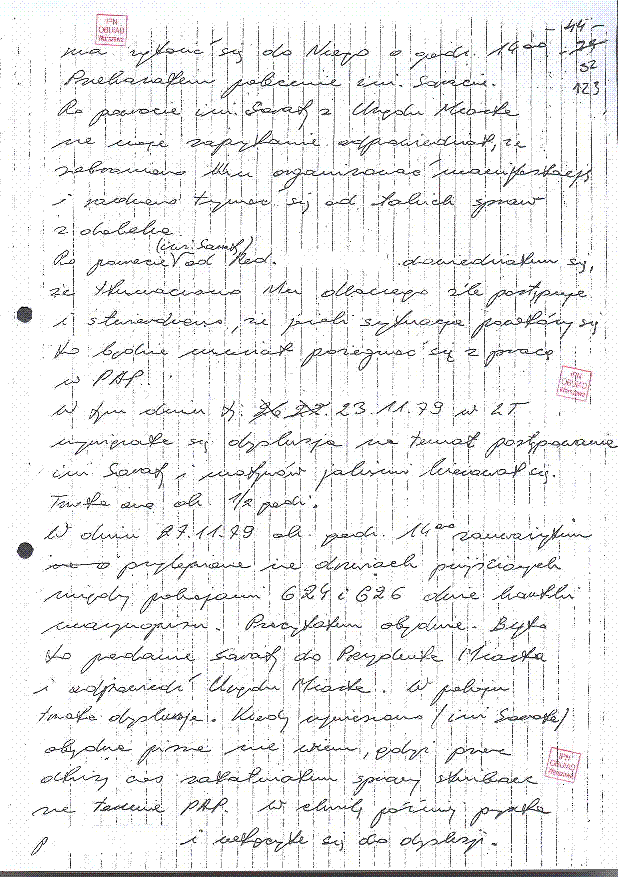 IPN
OBUiAD
Warszawa
- 44 -
52
123
ma zgłosić się do Niego o godz. 14⁰⁰
Przekazałem polecenie inż. Saracie.
Po powrocie inż. Saraty z Urzędu Miasta
na moje zapytanie odpowiedział, że
zabroniono Mu organizować manifestację
i radzono trzymać się od takich spraw
z daleka.
Po powrocie (inż. Saraty) od Red. dowiedziałem się,
że tłumaczono Mu dlaczego źle postępuje
i stwierdzono, że jeśli sytuacja powtórzy się
to będzie musiał pożegnać się z pracą
w PAP.
W tym dniu tj. 26 22. 23.11.79 w ZT
wywiązała się dyskusja na temat postępowania
inż. Saraty i motywów jakimi kierował się.
Trwała ona ok. 1/2 godz.
IPN
OBUiAD
Warszawa
W dniu 27.11.79 ok. godz. 14⁰⁰ zauważyłem
przylepione na drzwiach
między pokojami 624 i 626 dwie kartki
maszynopisu. Przeczytałem obydwie. Było
to podanie Saraty do Prezydenta Miasta
i odpowiedź Urzędu Miasta. W pokoju
trwała dyskusja. Kiedy wywieszono (inż. Sarata)
obydwa pisma nie wiem, gdyż przez
dłuższy czas załatwiałem sprawy służbowe
na terenie PAP. W chwilę później przyszła
i włączyła się do dyskusji.
IPN
OBUiAD
Warszawa